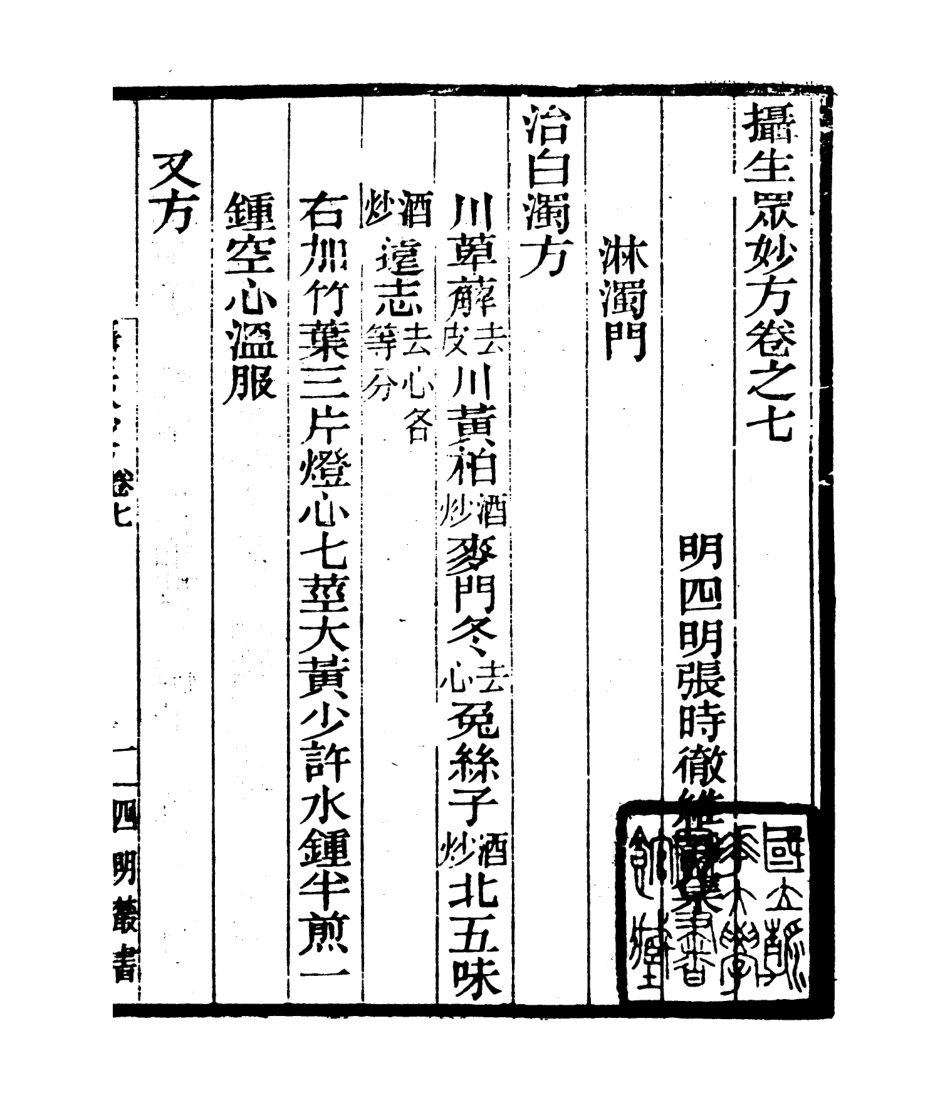 攝生眾妙方卷之七
明四明張時徹維靜集
淋濁門
治白濁方
川萆薢去皮川黃柏酒炒麥門冬去心兔絲子酒炒北五味
酒炒遠志去心各等分
右加竹葉三片燈心七莖大黃少許水鍾半煎一
鍾空心溫服
又方
卷七
一 四明叢書